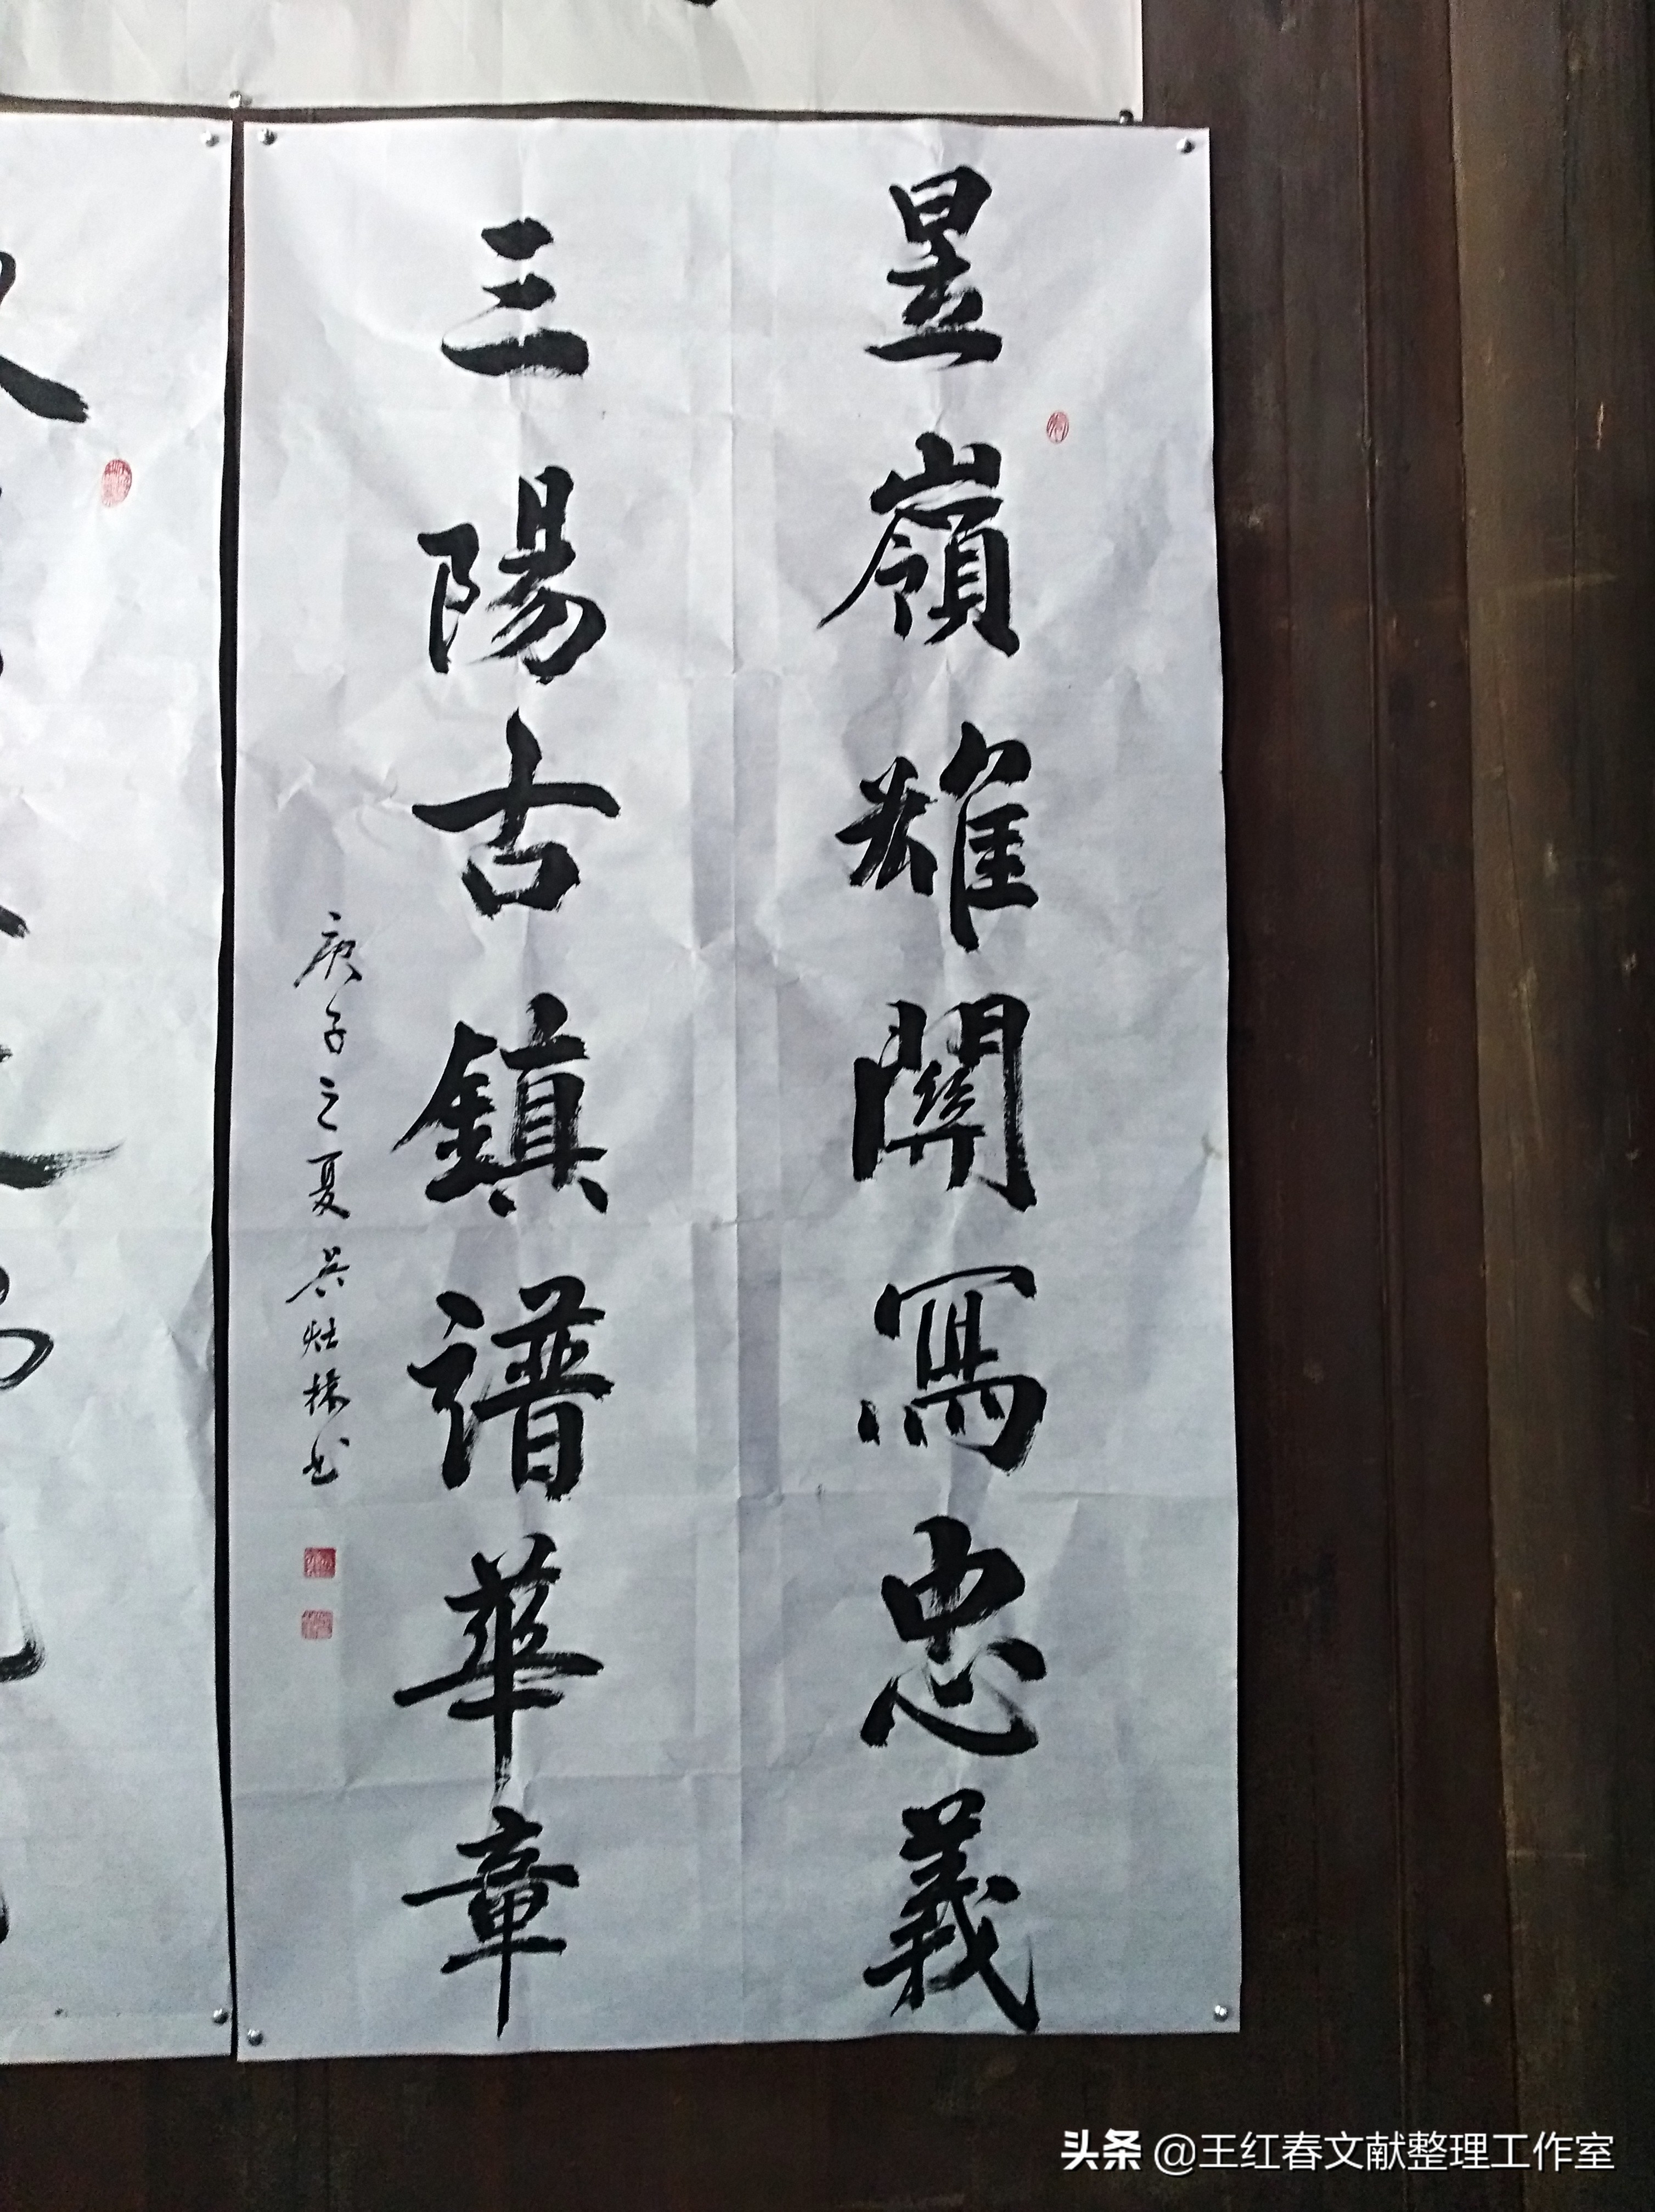 昱嶺雄關寫忠義
三陽古鎮譜華章
庚子之夏吴灶樑书
头条 @王红春文献整理工作室